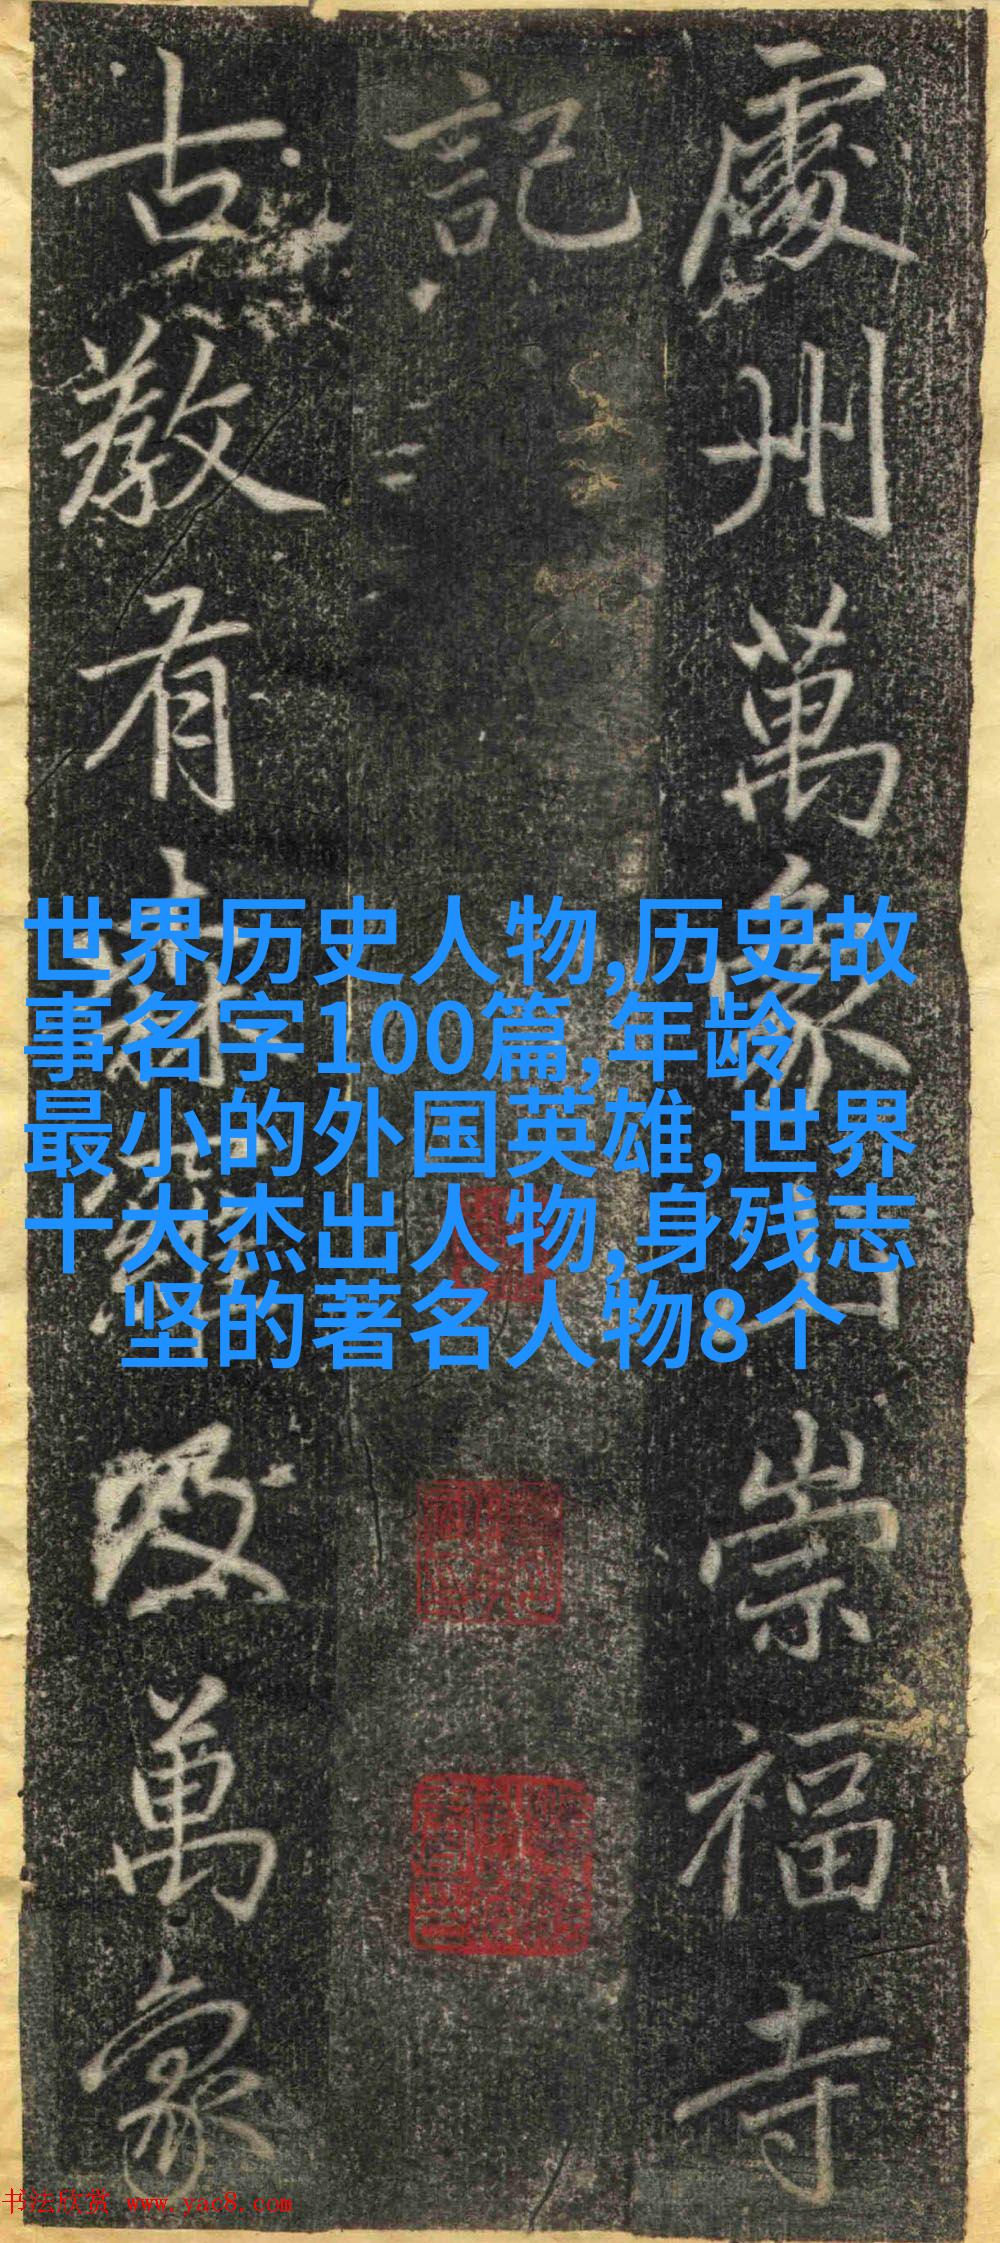 處州萬象山崇福寺
記
古教有 及萬象
世界历史人物,历史故
事名字100篇,年龄
最小的外国英雄,世界
十大杰出人物,身残志
坚的著名人物8个
书法欣赏 www.yac8.com